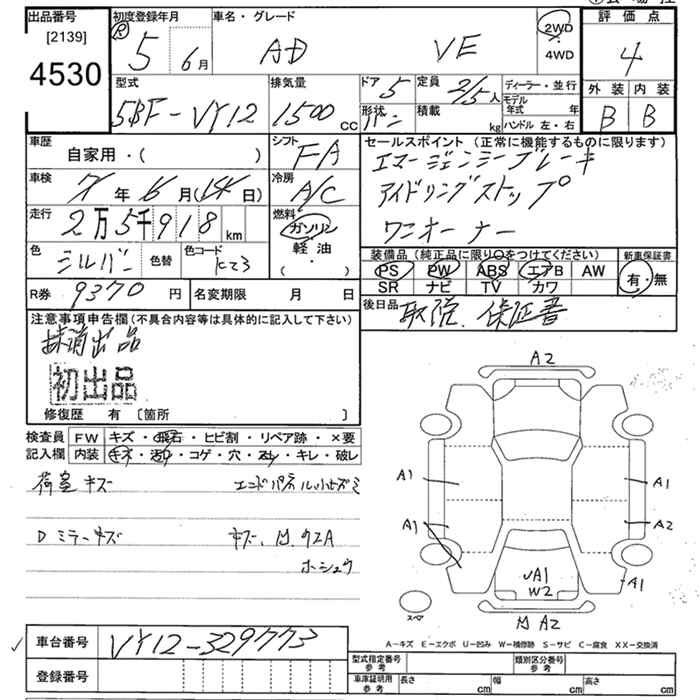 出品番号
[2139]
4530
初度登録年月
Ⓡ 5 6月
車名・グレード
AD VE
2WD
4WD
評価点
4
外装 内装
B B
型式
5BF-VY12
排気量
1500 CC
ドア 5
定員 2/5人
形状 バン
積載 kg
ディーラー・並行
モデル年式 年
ハンドル 左・右
車歴
自家用・( )
シフト
FA
車検
7年6月(14日)
冷房
A/C
走行
2万5千918km
燃料
ガソリン
軽油
・
( )
色
シルバー
色替
色コード
K23
R券 9370円
名変期限 月 日
セールスポイント(正常に機能するものに限ります)
エマージェンシーブレーキ
アイドリングストップ
ワンオーナー
装備品(純正品に限り○をつけてください)
PS PW ABS エアB AW
SR ナビ TV カワ
新車保証書
有・無
後日品 取説、保証書
注意事項申告欄(不具合内容等は具体的に記入して下さい)
抹消出品
初出品
修復歴 有 〔箇所 〕
検査員記入欄
FW キズ・飛石・ヒビ割・リペア跡・×要
内装 キズ・汚れ・コゲ・穴・スレ・キレ・破レ
荷室キズ
エンドパネル小キズミ
Dミラーキズ
キズ、M.クエA
ホシュウ
A2
A1
A1
A1
A2
A1
UA1
W2
M A2
スペア
A−キズ E−エクボ U−凹み W−補修跡 S−サビ C−腐食 XX−交換済
車台番号 VY12-329773
登録番号
型式指定番号 参考
類別区分番号 参考
車庫証明用 参考
長さ cm
幅 cm
高さ cm